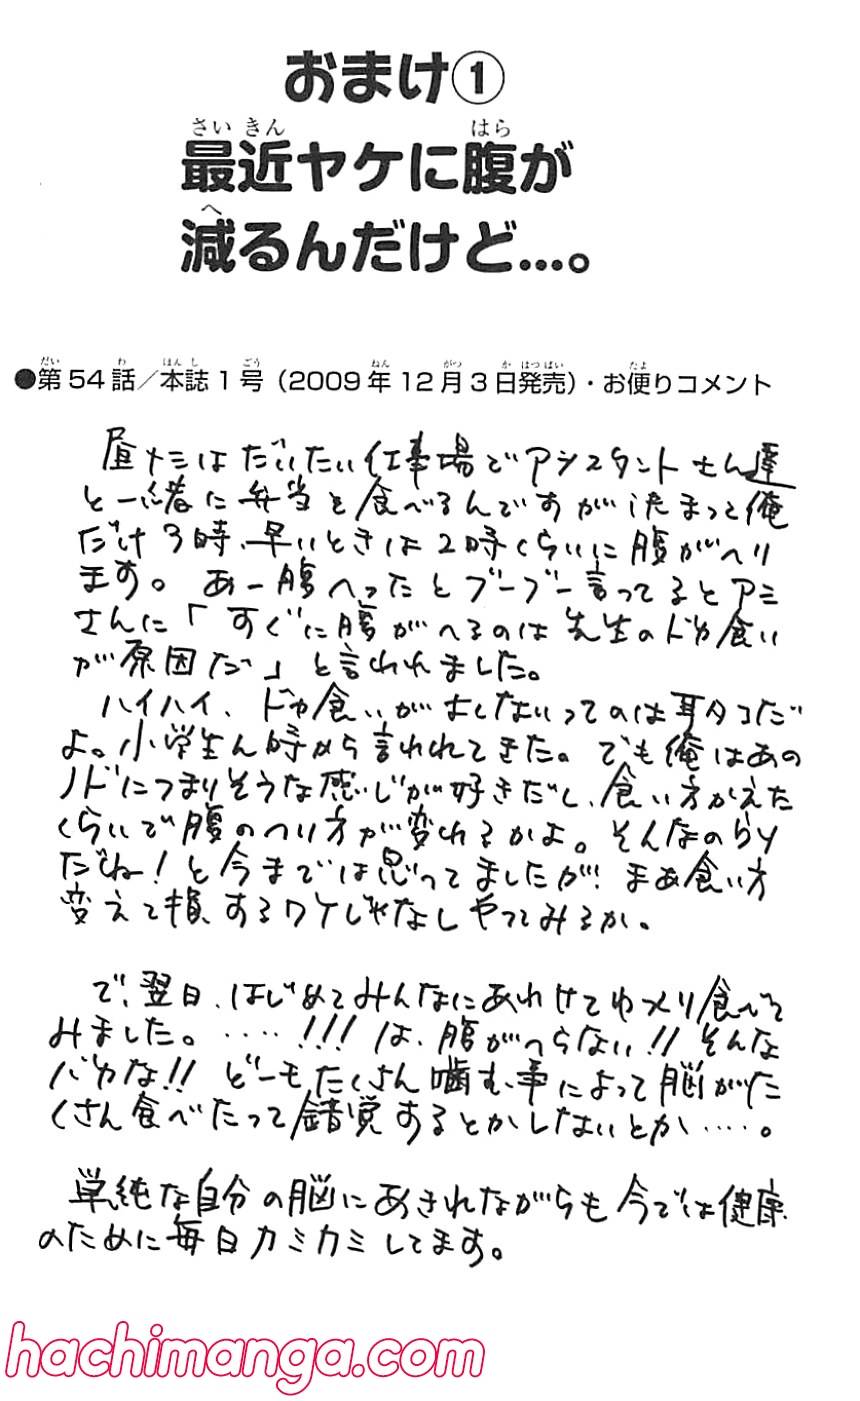 おまけ①
最近ヤケに腹が
減るんだけど…。
●第54話／本誌1号（2009年12月3日発売）・お便りコメント
昼メシはだいたい仕事場でアシスタントさん達
と一緒に弁当を食べるんですが決まって俺
だけ3時、早いときは2時くらいに腹がへり
ます。あー腹へったとブーブー言ってるとアシ
さんに「すぐに腹がへるのは先生のドカ食い
が原因だ」と言われました。
ハイハイ、ドカ食いがよくないってのは耳タコだ
よ。小学生ん時から言われてきた。でも俺はあの
ノドにつまりそうな感じが好きだし、食い方かえた
くらいで腹のへり方が変わるかよ。そんなのらり
だね！と今までは思ってましたが、まあ食い方
変えて損するワケじゃなしやってみるか。
で、翌日、はじめてみんなにあわせてゆっくり食べて
みました。‥‥!!!は、腹がへらない!!そんな
バカな!!どーもたくさん噛む事によって脳がた
くさん食べたって錯覚するとかしないとか‥‥。
単純な自分の脳にあきれながらも今では健康
のために毎日カミカミしてます。
hachimanga.com